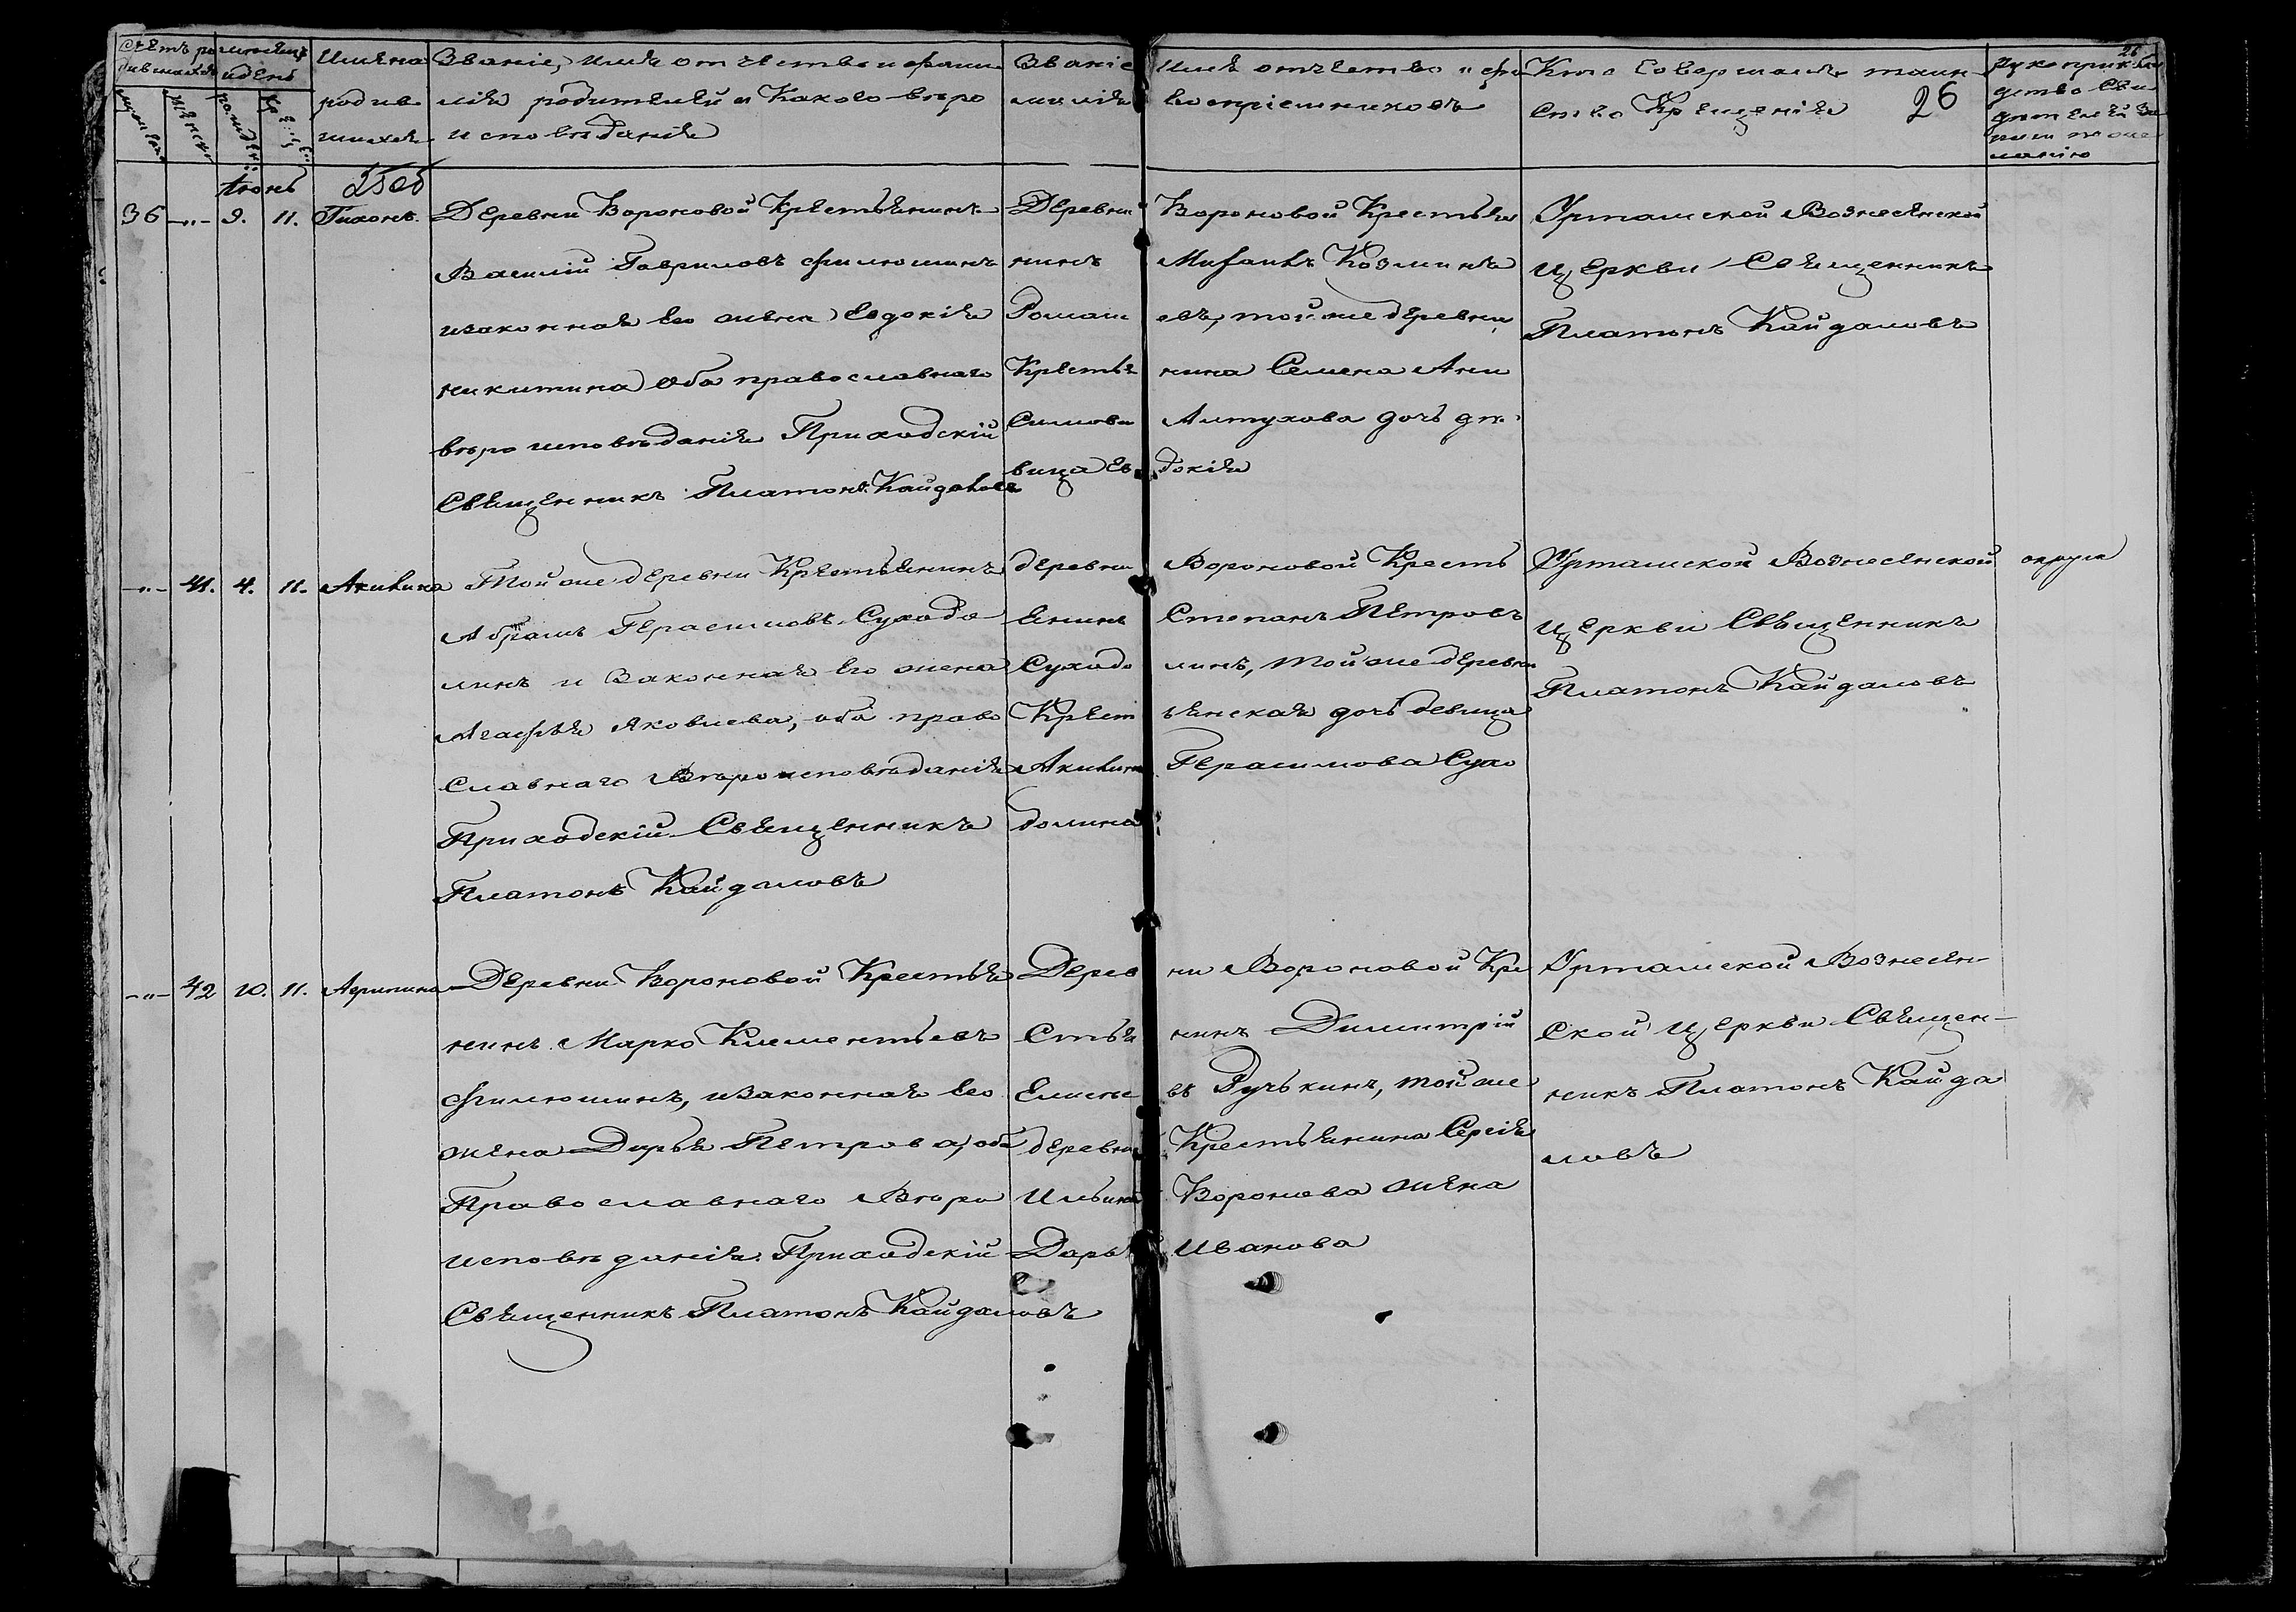 26
Счетъ родившихся
Мѣсяцъ и день
мужеска
женска
рожден.
крещен.
Имена родившихся
Званіе, имя отчество и фами
лія родителей и Какого вѣро
исповѣданія
Званіе имя отчество и фа
милія воспріемниковъ
Кто Совершалъ таин
ство Крещенія
26
рукоприкла
дство Сви
дѣтелей За
писи по же
ланію
Іюнь
36 —„— 9. 11. Тихонъ.
Деревни Вороновой Крестьянинъ
Василій Гавриловъ Филюшинъ
изаконная Его жена Евдокія
никитина оба православнаго
вѣроисповѣданія Приходскій
Священникъ Платонъ Кайдаловъ
Деревни Вороновой Крестья
нинъ Козминъ
Роман евъ, тойже деревни
Крестья нина Семена Ани
Симова Алтухова дочь дѣ
вица Ев докія
Урташской Вознесенской
Церкви Священникъ
Платонъ Кайдаловъ
—„— 41. 4. 11. Акилина
Тойже деревни Крестьянинъ
Абрамъ Герасимовъ Суходо
линъ и Законная Его жена
Агафья Яковлева, оба право
Славнаго Вѣроисповѣданія
Приходскій Священникъ
Платонъ Кайдаловъ
деревни Вороновой Кресть
Янинъ Степанъ Петровъ
Суходо линъ, тойже деревни
Крест ьянская дочь девица
Акилина Герасимова Сухо
долина
Урташской Вознесенской
Церкви Священникъ
Платонъ Кайдаловъ
—„— 42 10. 11. Агрипина
Деревни Вороновой Крестья
нинъ Марко Клементьевъ
Филюшинъ, изаконная Его
жена Дарья Петрова, оба
Православнаго Вѣро
исповѣданія Приходскій
Священникъ Платонъ Кайдаловъ
Дерев ни Вороновой Кре
Стья нинъ Димитрій
въ Ручькинъ, тойже
деревни Крестьянина Сергія
Ильина Воронова жена
Дарья Иванова
Урташской Вознесен-
ской Церкви Священ-
никъ Платонъ Кайда
ловъ